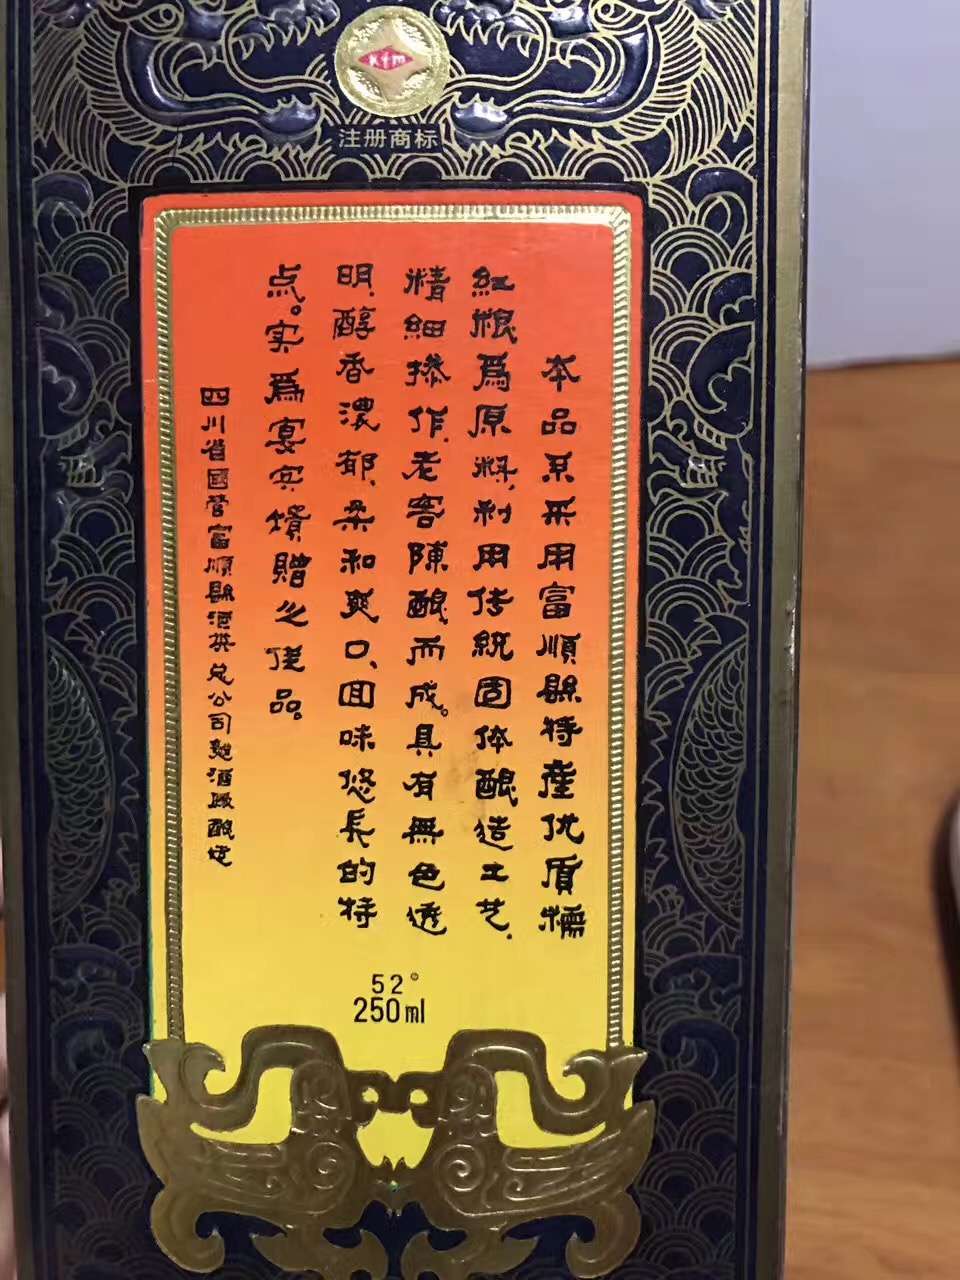 Kfm
注册商标
本品系采用富順縣特產优质糯
紅粮為原料,利用传統固体酿造工艺,
精细操作,老窖陳酿而成。具有無色透
明,醇香濃郁,柔和爽口,回味悠長的特
点。实為宴宾馈贈之佳品。
四川省國营富順縣酒类总公司麯酒厰酿造
52°
250ml